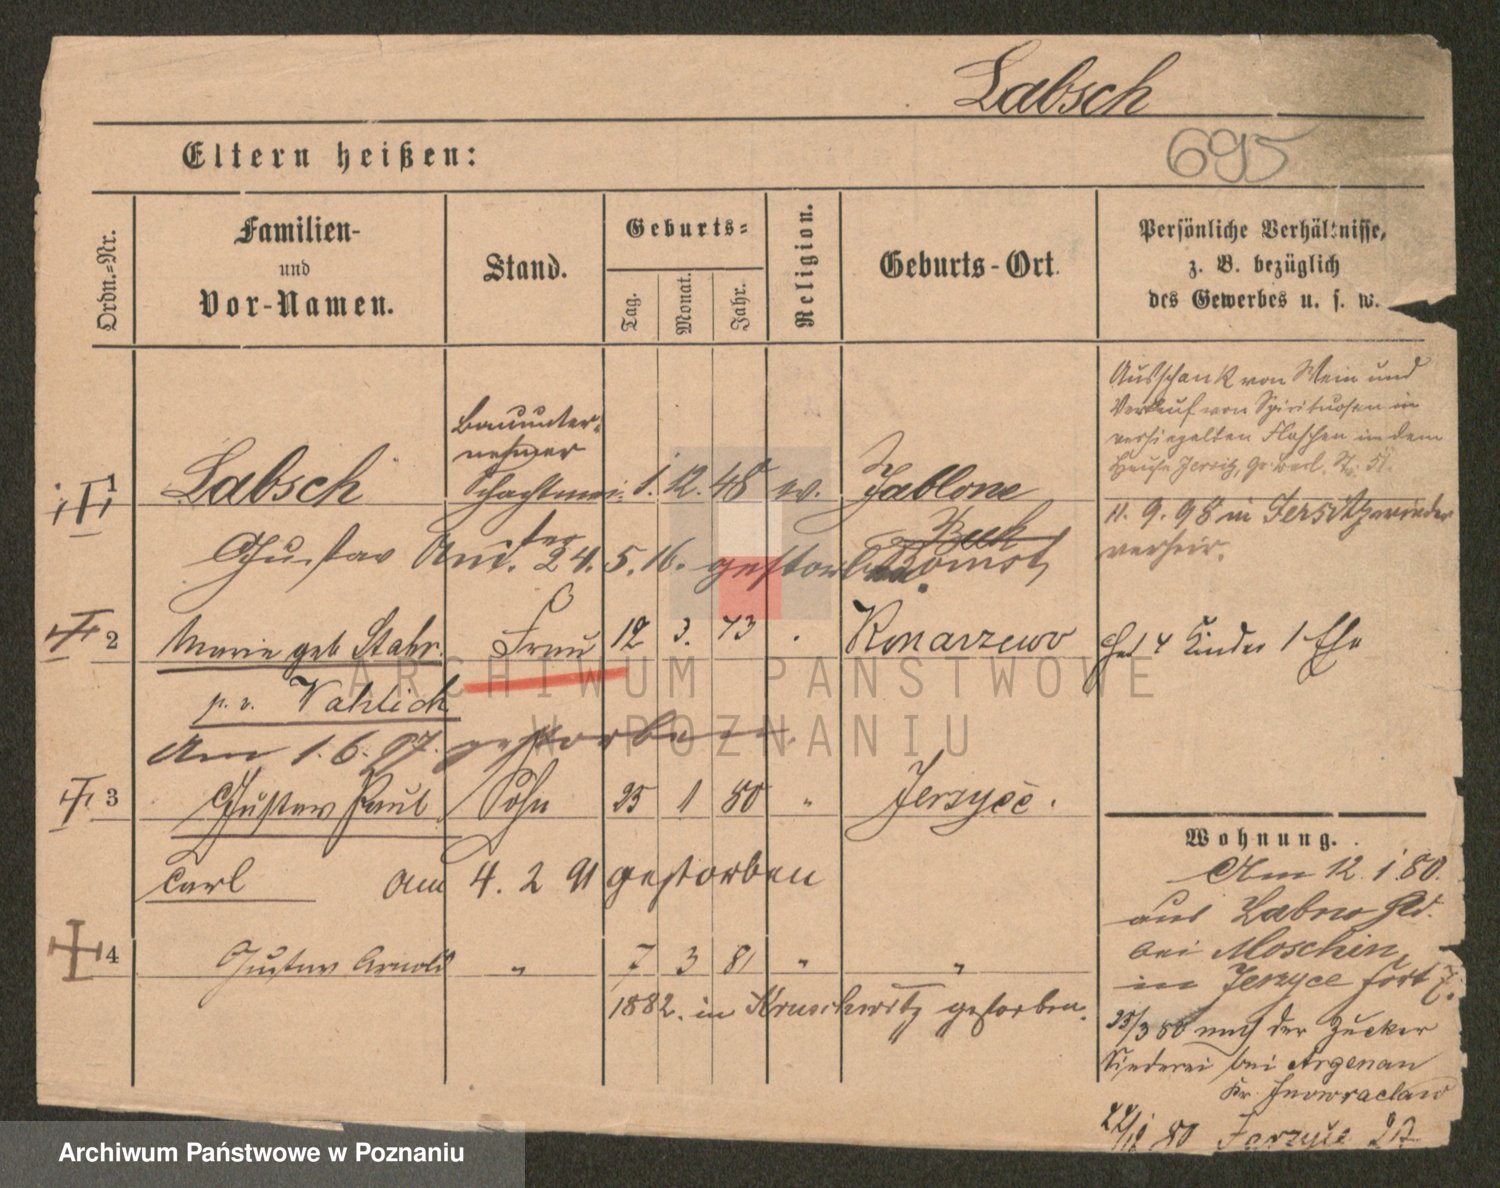 Labsch
695
Eltern heißen:
Ordn.=Nr.
Familien-
und
Vor-Namen.
Stand.
Geburts=
Tag.
Monat.
Jahr.
Religion.
Geburts-Ort.
Persönliche Verhältnisse,
z. B. bezüglich
des Gewerbes u. s. w.
Ausschank von Wein und
Verkauf von Spirituosen in
versiegelten Flaschen in dem
Hause Jersitz, Gr. Berl. Str. 51.
11. 9. 98 in Jersitz wieder
verheir.
Bauunter=
nehmer
1 Labsch Schachtmei. 1. 12. 48 ev. Jablone
ster
Gustav Am. 24. 5. 16. gestorben. Bomst
2 Marie geb Stahr. Frau 12 3. 73 . Konarzewo Hat 4 Kinder 1 Ehe
p. v. Vahlich
Am 1. 6. 97. gestorben.
3 Gustav Paul Sohn 25 1 80 " Jerzyce.
Carl am 4. 2 91 gestorben
4 Gustav Arnold " 7 3 81 " "
1882. in Kruschwitz gestorben.
Wohnung.
Am 12. 1. 80.
aus Labno
bei Moschin,
in Jerzyce Fort 7.
25/3 80 nach der Zucker
Siederei bei Argenau
Kr. Inowraclaw
80 Jerzyce 27
ARCHIWUM PAŃSTWOWE
W POZNANIU
Archiwum Państwowe w Poznaniu